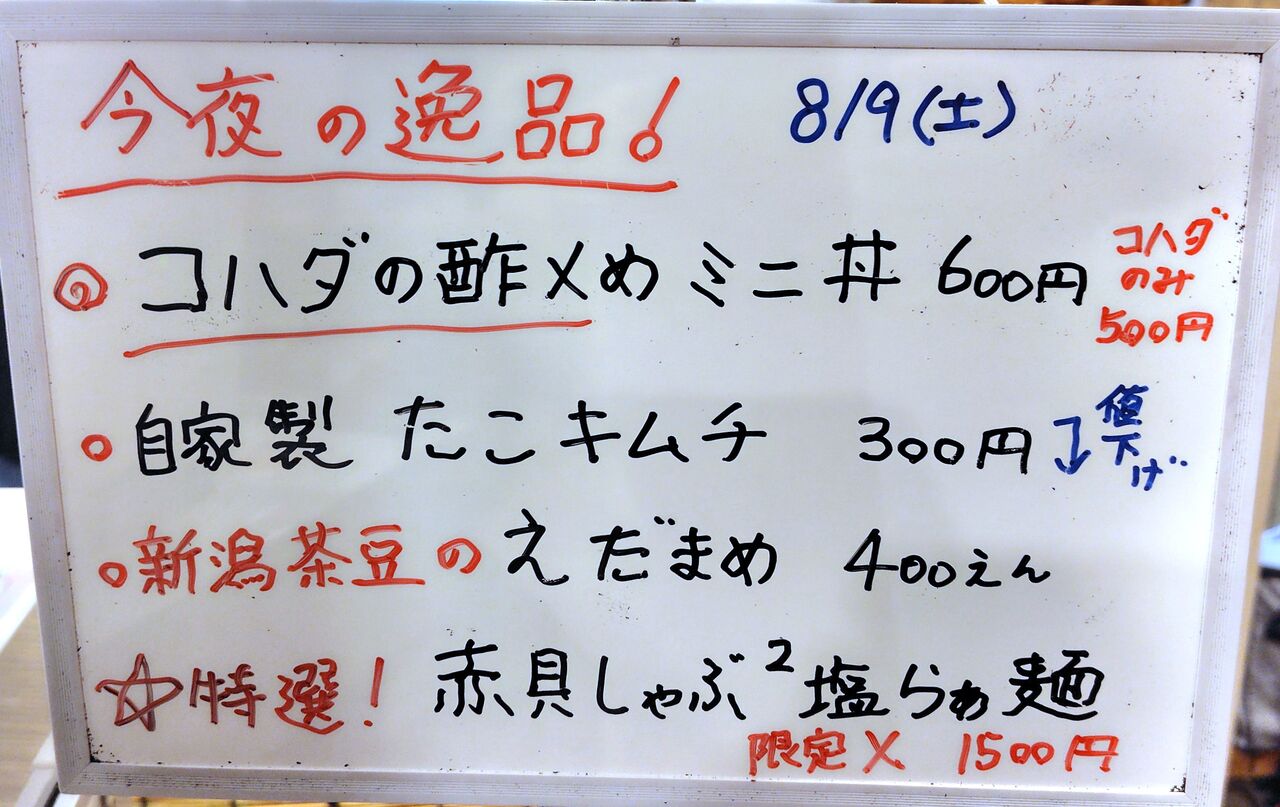 今夜の逸品! 8/9(土)
◎ コハダの酢〆めミニ丼 600円
コハダ
のみ
500円
○ 自家製 たこキムチ 300円 値下げ
○ 新潟茶豆の えだまめ 400えん
☆特選! 赤貝しゃぶ²塩らぁ麺
限定〆 1500円